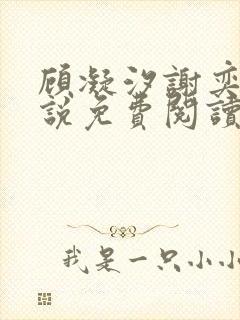 顾凝汐謝奕
說免費閱讀
我是一只小小